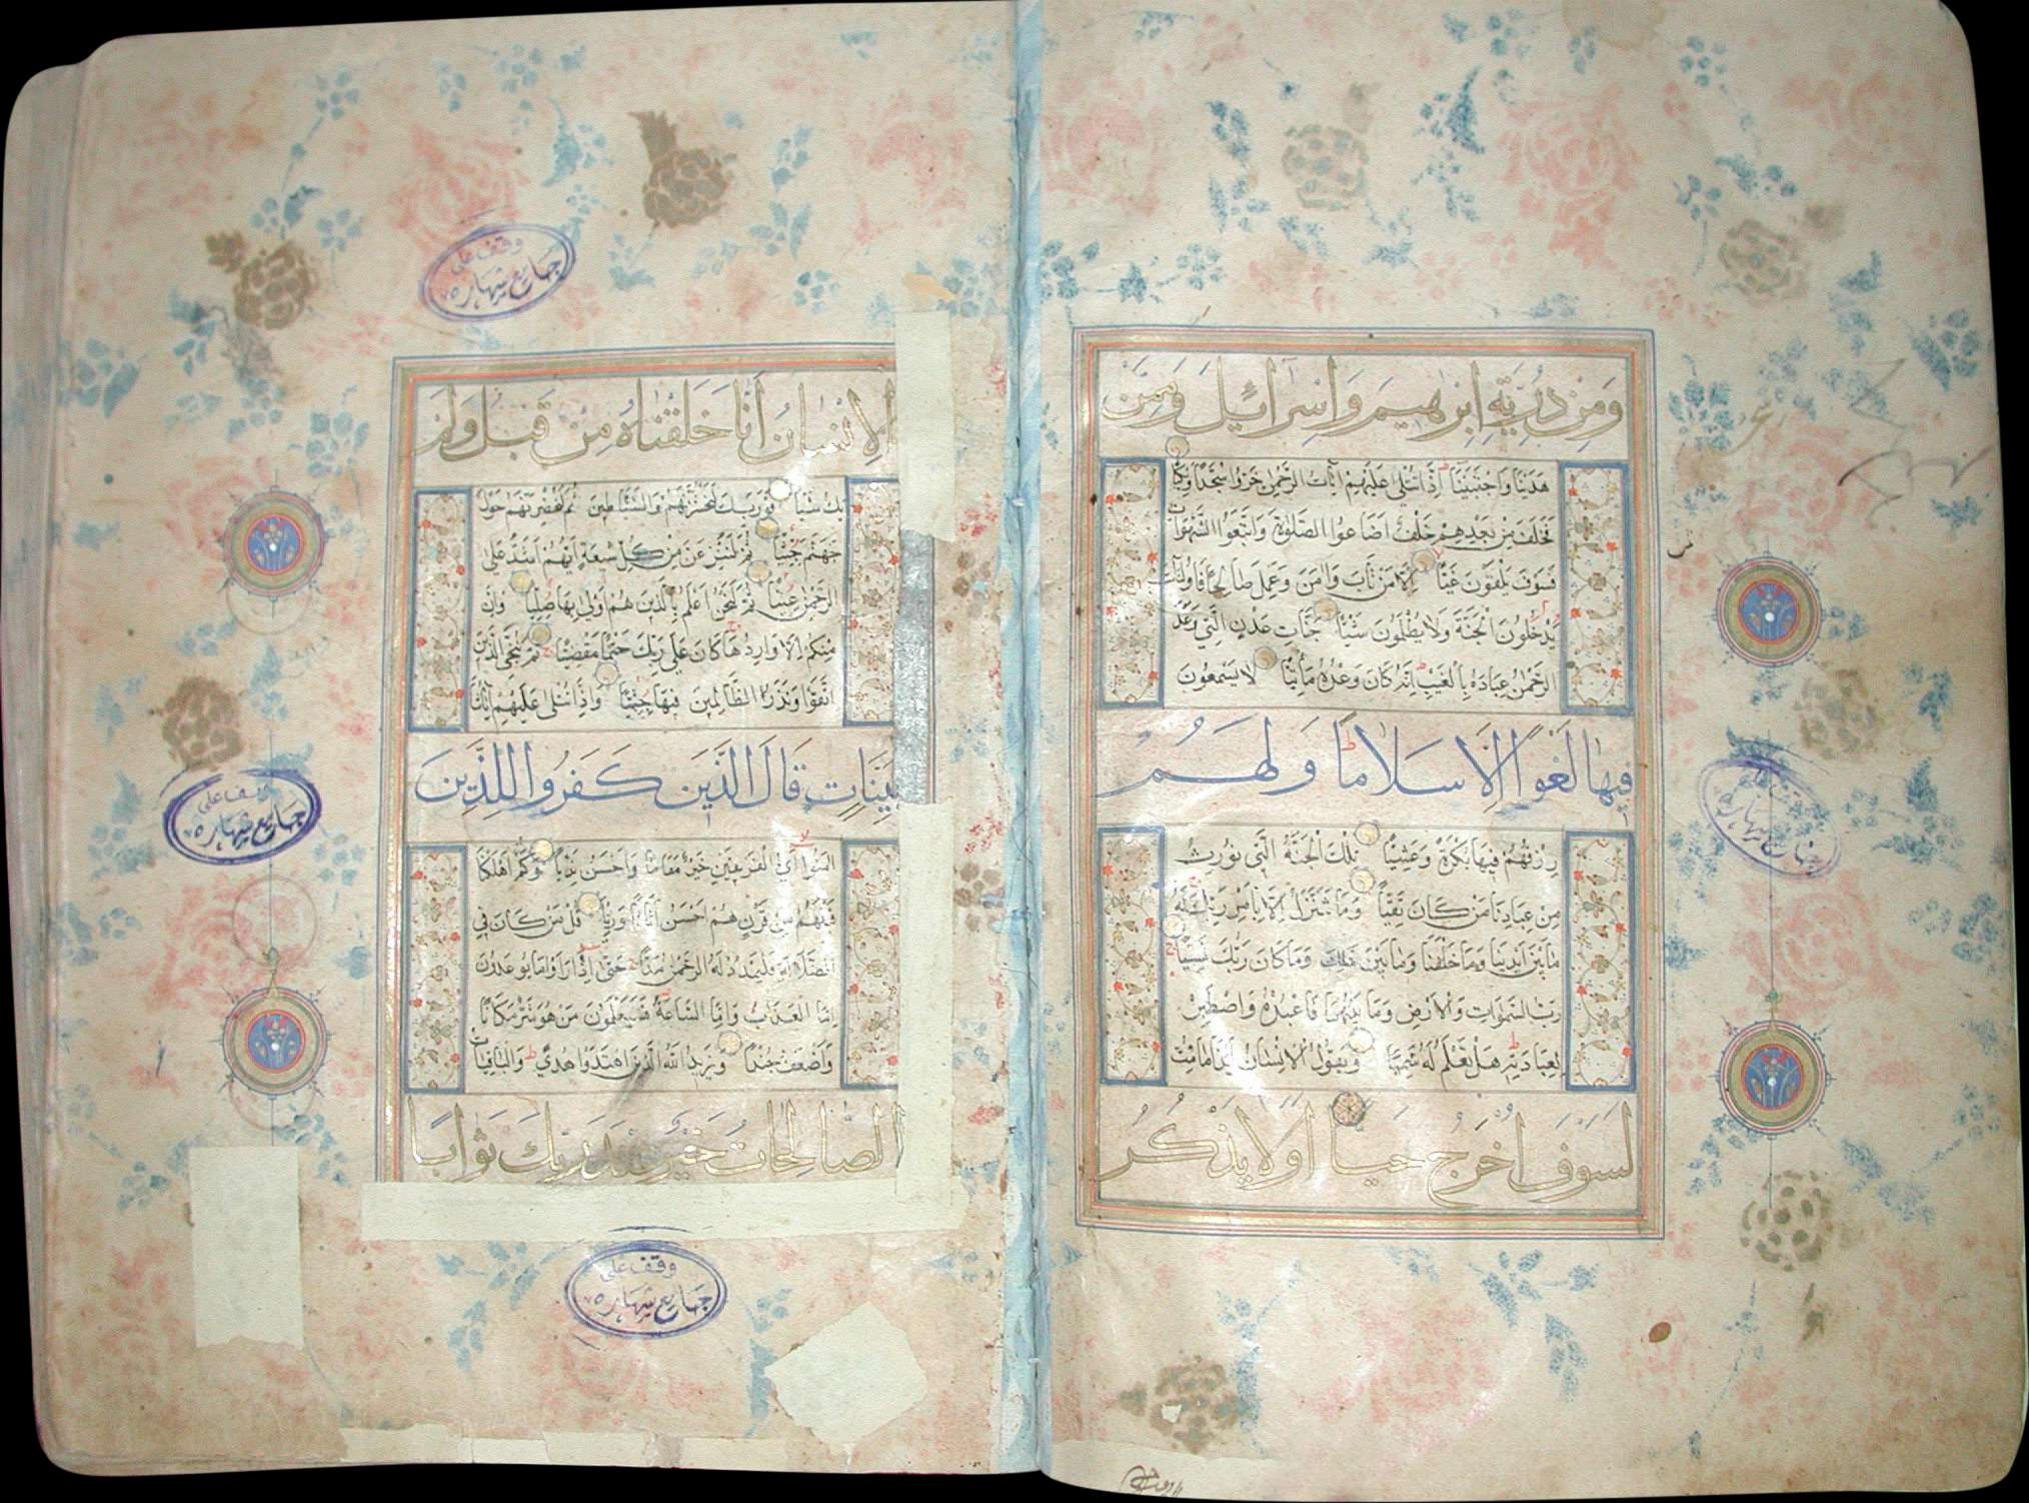 وَمِنْ ذُرِّيَّةِ اِبْرٰهِيمَ وَاِسْرَائِيلَ وَمِمَّنْ
هَدَيْنَا وَاجْتَبَيْنَا اِذَا تُتْلٰى عَلَيْهِمْ آيَاتُ الرَّحْمٰنِ خَرُّوا سُجَّدًا وَبُكِيًّا
فَخَلَفَ مِنْ بَعْدِهِمْ خَلْفٌ اَضَاعُوا الصَّلٰوةَ وَاتَّبَعُوا الشَّهَوَاتِ
فَسَوْفَ يَلْقَوْنَ غَيًّا اِلَّا مَنْ تَابَ وَاٰمَنَ وَعَمِلَ صَالِحًا فَاُولٰئِكَ
يَدْخُلُونَ الْجَنَّةَ وَلَا يُظْلَمُونَ شَيْئًا جَنَّاتِ عَدْنٍ الَّتِي وَعَدَ
الرَّحْمٰنُ عِبَادَهُ بِالْغَيْبِ اِنَّهُ كَانَ وَعْدُهُ مَأْتِيًّا لَا يَسْمَعُونَ
فِيهَا لَغْوًا اِلَّا سَلَامًا وَلَهُمْ
رِزْقُهُمْ فِيهَا بُكْرَةً وَعَشِيًّا تِلْكَ الْجَنَّةُ الَّتِي نُورِثُ
مِنْ عِبَادِنَا مَنْ كَانَ تَقِيًّا وَمَا نَتَنَزَّلُ اِلَّا بِاَمْرِ رَبِّكَ لَهُ
مَا بَيْنَ اَيْدِينَا وَمَا خَلْفَنَا وَمَا بَيْنَ ذٰلِكَ وَمَا كَانَ رَبُّكَ نَسِيًّا
رَبُّ السَّمٰوَاتِ وَالْاَرْضِ وَمَا بَيْنَهُمَا فَاعْبُدْهُ وَاصْطَبِرْ
لِعِبَادَتِهِ هَلْ تَعْلَمُ لَهُ سَمِيًّا وَيَقُولُ الْاِنْسَانُ ءَاِذَا مَا مِتُّ
لَسَوْفَ اُخْرَجُ حَيًّا اَوَلَا يَذْكُرُ
الْاِنْسَانُ اَنَّا خَلَقْنَاهُ مِنْ قَبْلُ وَلَمْ
يَكُ شَيْئًا فَوَرَبِّكَ لَنَحْشُرَنَّهُمْ وَالشَّيَاطِينَ ثُمَّ لَنُحْضِرَنَّهُمْ حَوْلَ
جَهَنَّمَ جِثِيًّا ثُمَّ لَنَنْزِعَنَّ مِنْ كُلِّ شِيعَةٍ اَيُّهُمْ اَشَدُّ عَلَى
الرَّحْمٰنِ عِتِيًّا ثُمَّ لَنَحْنُ اَعْلَمُ بِالَّذِينَ هُمْ اَوْلٰى بِهَا صِلِيًّا وَاِنْ
مِنْكُمْ اِلَّا وَارِدُهَا كَانَ عَلٰى رَبِّكَ حَتْمًا مَقْضِيًّا ثُمَّ نُنَجِّي الَّذِينَ
اتَّقَوْا وَنَذَرُ الظَّالِمِينَ فِيهَا جِثِيًّا وَاِذَا تُتْلٰى عَلَيْهِمْ آيَاتُنَا
بَيِّنَاتٍ قَالَ الَّذِينَ كَفَرُوا لِلَّذِينَ
اٰمَنُوا اَيُّ الْفَرِيقَيْنِ خَيْرٌ مَقَامًا وَاَحْسَنُ نَدِيًّا وَكَمْ اَهْلَكْنَا
قَبْلَهُمْ مِنْ قَرْنٍ هُمْ اَحْسَنُ اَثَاثًا وَرِئْيًا قُلْ مَنْ كَانَ فِي
الضَّلَالَةِ فَلْيَمْدُدْ لَهُ الرَّحْمٰنُ مَدًّا حَتّٰى اِذَا رَاَوْا مَا يُوعَدُونَ
اِمَّا الْعَذَابَ وَاِمَّا السَّاعَةَ فَسَيَعْلَمُونَ مَنْ هُوَ شَرٌّ مَكَانًا
وَاَضْعَفُ جُنْدًا وَيَزِيدُ اللّٰهُ الَّذِينَ اهْتَدَوْا هُدًى وَالْبَاقِيَاتُ
الصَّالِحَاتُ خَيْرٌ عِنْدَ رَبِّكَ ثَوَابًا
وقف على
جامع شهاره
وقف على
جامع شهاره
وقف على
جامع شهاره